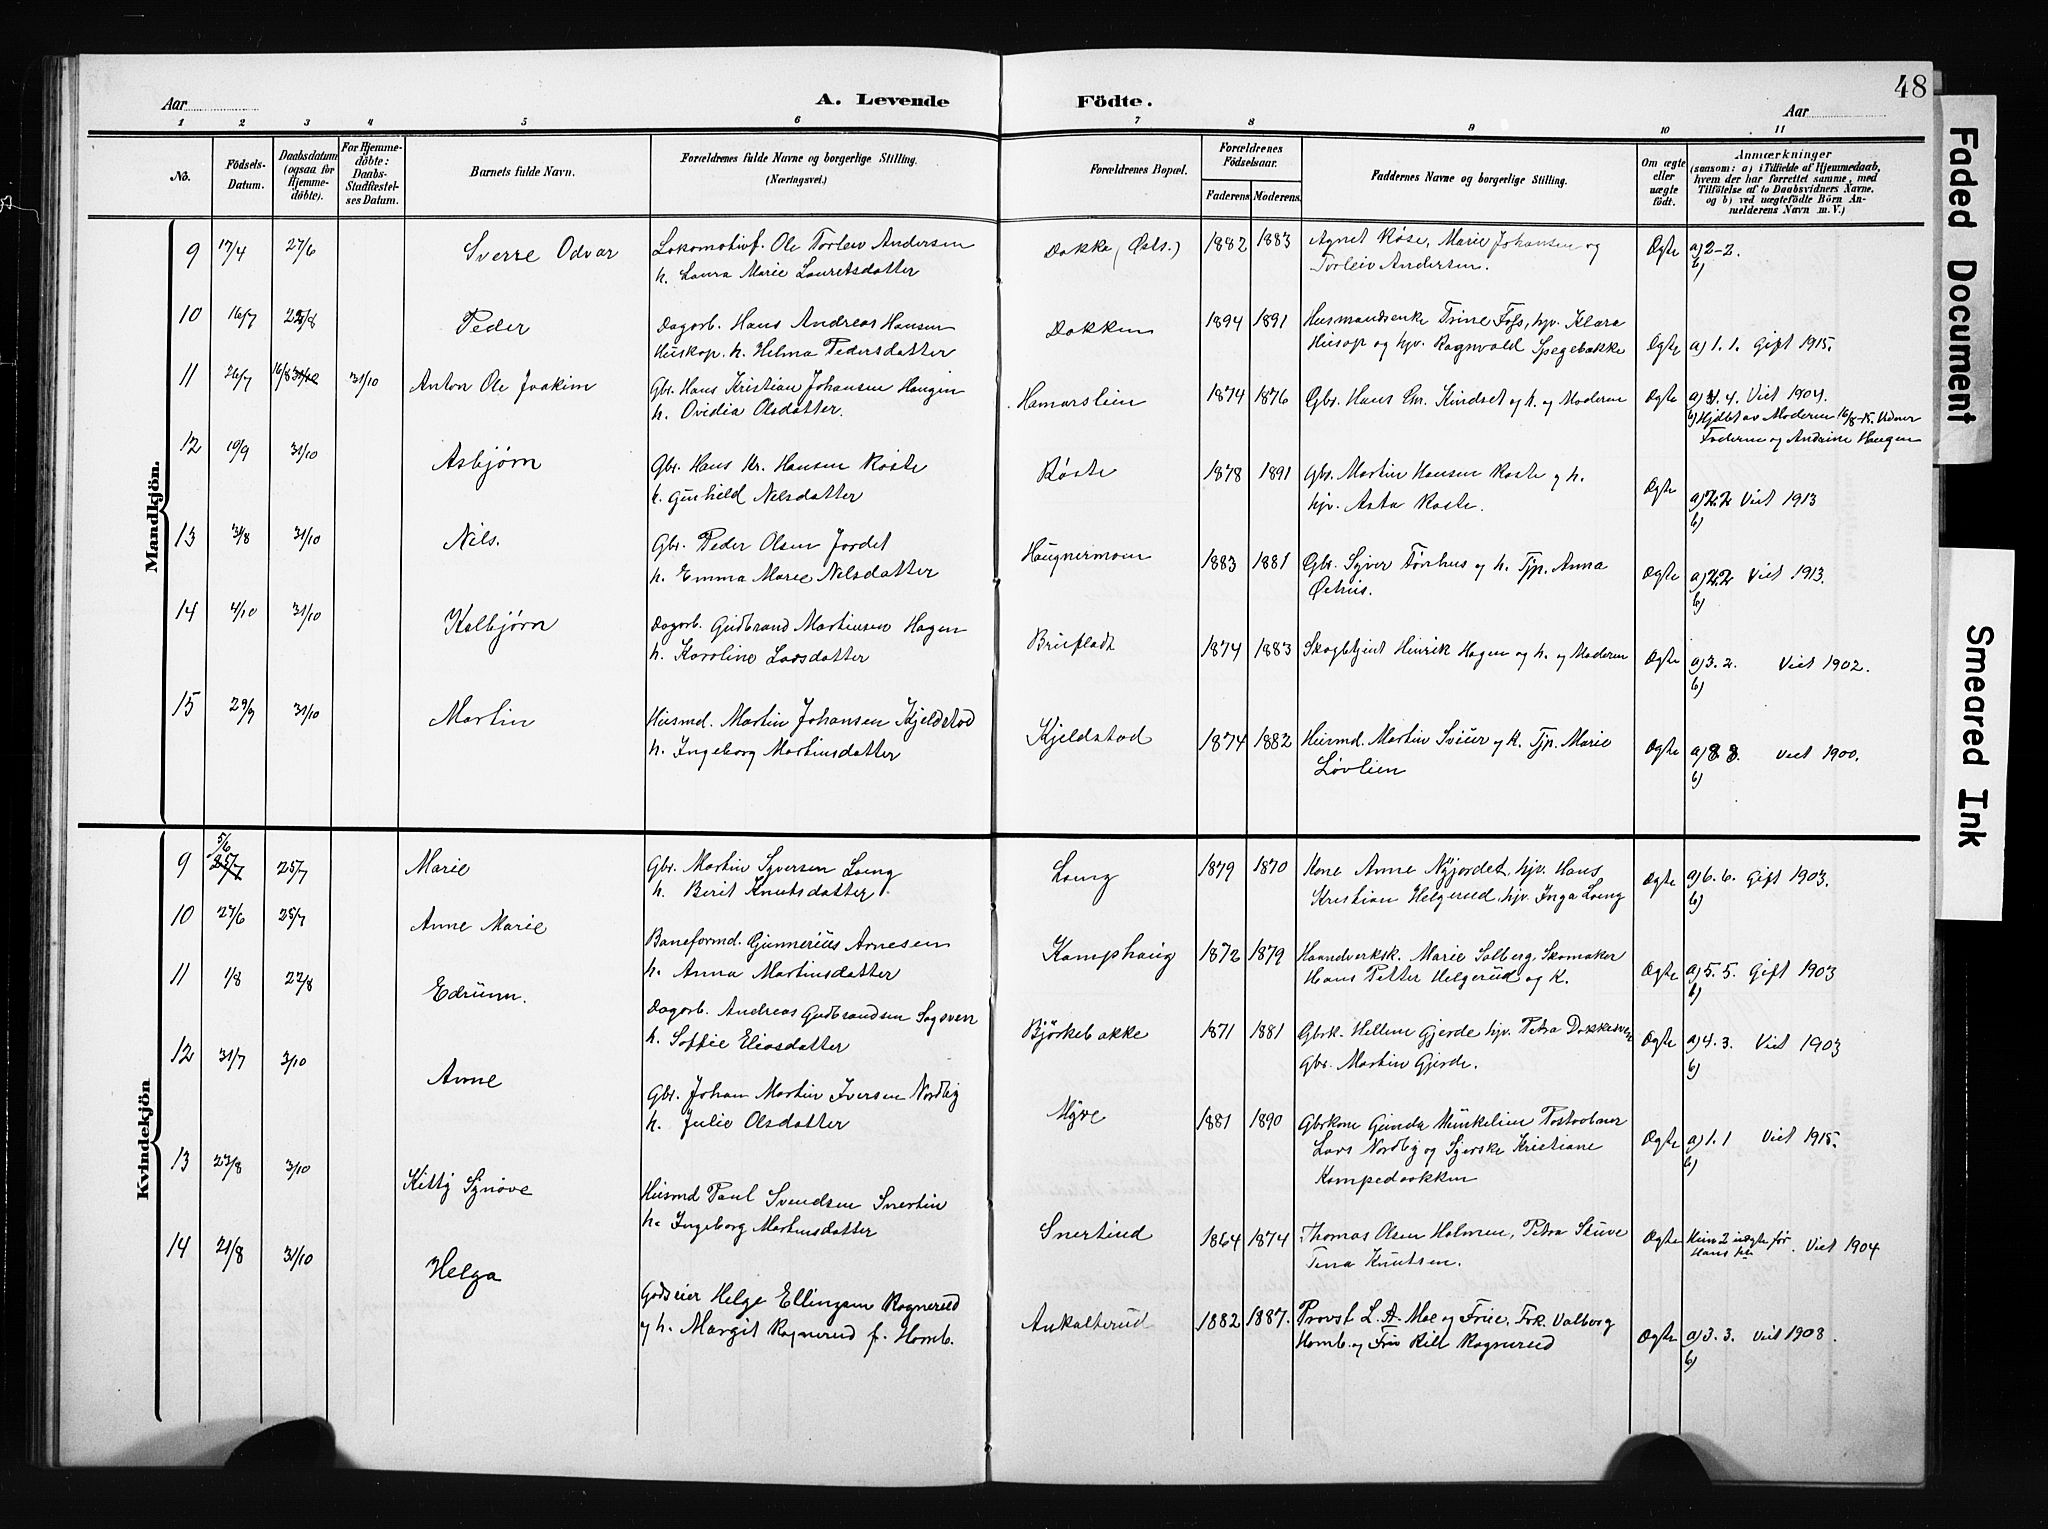 48
Aar
A. Levende
Födte.
Aar
1 2 3 4 5 6 7 8 9 10 11
No.
Födsels-Datum.
Daabsdatum (ogsaa for Hjemmedöbte).
For Hjemmedöbte: Daabs-Stadfæstelses Datum.
Barnets fulde Navn.
Forældrenes fulde Navne og borgerlige Stilling.
(Næringsvei.)
Forældrenes Bopæl.
Forældrenes Födselsaar.
Faderens
Moderens
Faddernes Navne og borgerlige Stilling.
Om ægte eller uægte födt.
Anmærkninger
(saasom: a) i Tilfælde af Hjemmedaab,
hvem der har forrettet samme, med
Tilföielse af to Daabsvidners Navne.
og b) ved uægtefödte Börn An-
melderens Navn m. V.)
Mandkjön.
9 17/4 27/6 Sverre Odvar Lokomotivf. Ole Torleiv Andersen Dokka (Østs.) 1882 1883 Agnet Røse, Marie Johansen og Ægte a) 2-2.
h. Laura Marie Lauretsdatter Torleiv Andersen. b)
10 16/7 22/8 Peder Dagarb. Hans Andreas Hansen Dokken 1894 1891 Husmandsenke Trine Fofs, hjv. Klara
Huskop. h. Helma Pedersdatter Husop og hjv. Ragnvald Spegebakke Ægte a) 1.1. Gift 1915.
11 26/7 16/8 31/10 31/10 Anton Ole Joakim Gbr. Hans Kristian Johansen Haugen Hamarslien 1874 1876 Gbr. Hans Chr. Kindset og h. og Moderen Ægte a) 4.4. Viet 1904.
h. Ovidia Olsdatter. b) Hjdøbt av Moderen 16/8-15. Vidner
Faderen og Andrine Haugen
12 19/9 31/10 Asbjørn Gbr. Hans Kr. Hansen Røste Røste 1878 1891 Gbr. Martin Hansen Røste og h. Ægte a) 2.2 Viet 1913
h. Gunhild Nilsdatter hjv. Asta Røste. b)
13 3/8 31/10 Nils. Gbr. Peder Olsen Jordet Haugnermoen 1883 1881 Gbr. Syver Tønhus og h. Tjp. Anna Ægte a) 2.2 Viet 1913.
h. Emma Marie Nilsdatter Øihus. b)
14 4/10 31/10 Kolbjørn Dagarb. Gudbrand Martinsen Hagen Brufladt 1874 1883 Skogbtjent Hinrik Hagen og h. og Moderen Ægte a) 3.2. Viet 1902.
h. Karoline Larsdatter b)
15 29/9 31/10 Martin Husmd. Martin Johansen Kjeldstad Kjeldstad 1874 1882 Husmd. Martin Sviur og k. Tjp. Marie Ægte a) 8 8. Viet 1900.
h. Ingeborg Martinusdatter Løvlien b)
Kvindekjön
9 5/6 25/7 25/7 Marie Gbr. Martin Syversen Loeng Loeng 1879 1870 Kone Anne Nyjordet, hjv. Hans Ægte a) 6.6. Gift 1903.
h. Birit Knutsdatter. Kristian Helgerud, hjv. Inga Loeng b)
10 27/6 25/7 Anne Marie Baneformd. Gunnerius Arnesen Kamphaug 1872 1879 Haandverksk. Marie Solberg, Skomaker Ægte a) 5.5. Gift 1903
h. Anna Martinusdatter Hans Petter Helgerud og K. b)
11 1/8 22/8 Edrunn. Dagarb. Andreas Gudbrandsen Sagsveen Bjørkebakke 1871 1881 Gbrk. Hellene Gjerde hjv. Petra Dokkesveen Ægte a) 4.3. Viet 1903
h. Soffie Eliasdatter Gbr. Martin Gjerde. b)
12 31/7 3/10 Anne Gbr. Johan Martin Iversen Nordby Myre 1881 1890 Gbrkone Gunda Munkelien Tostoobaer
h. Julie Olsdatter Lars Nordby og Syerske Kristiane Ægte a) 1.1 Viet 1915.
Kompedokken b)
13 23/8 3/10 Kitty Synøve Husmd Paul Svendsen Snertin Snertind 1864 1874 Thomas Olsen Holmen, Petra Stuve Ægte Kun 2 uægte før . Viet 1904
h. Ingeborg Martinsdatter Tina Knutsen.
14 21/8 31/10 Helga Godseier Helge Ellingsen Rognerud Aukalterud 1882 1887. Provst L. A. Moe og Frue, Frk. Valborg Ægte a) 3.3. Viet 1908.
og h. Margit Rognerud f. Homb. Homb. og Fru Rill Rognerud b)
Faded Document
Smeared Ink